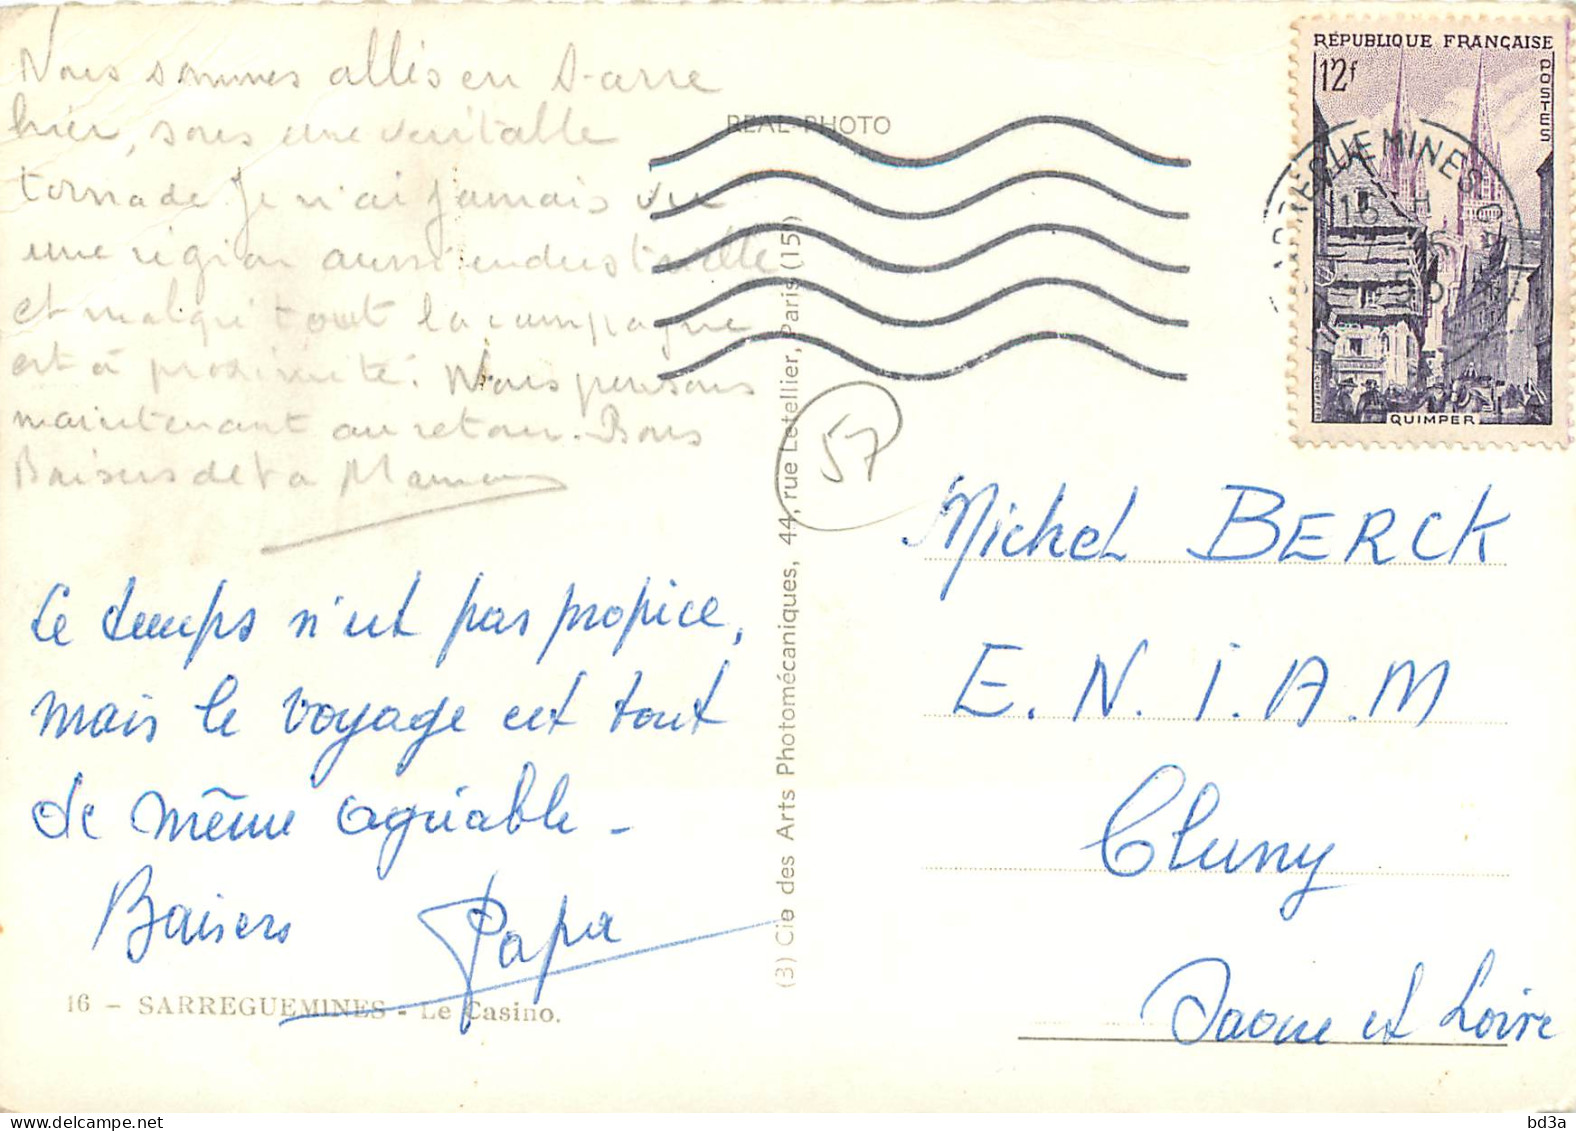 Nous sommes allés en Sarre
hier, sous une veritable
tornade Je n'ai jamais vu
une région aussi industrielle
et malgré tout la campagne
est à proximité. Nous pensons
maintenant au retour. Bons
Baisers de ta Maman
Le temps n'est pas propice,
mais le voyage est tout
de même agréable -
Baisers Papa
16 - SARREGUEMINES - Le Casino.
REAL-PHOTO
(3) Cie des Arts Photomécaniques, 44, rue Letellier, Paris (15e)
57
RÉPUBLIQUE FRANÇAISE
12f
POSTES
QUIMPER
SARREGUEMINES
16 H
Michel BERCK
E.N.I.A.M
Cluny
Saone et Loire
bd3a